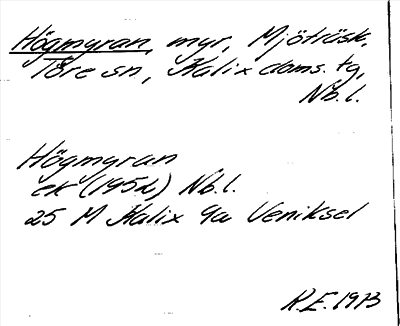 Högmyran, myr, Mjöträsk,
Töre sn, Kalix doms. tg,
Nb.l.
Högmyran
ek (1952) Nb.l.
25 M Kalix 9a Veniksel
R.E. 1973